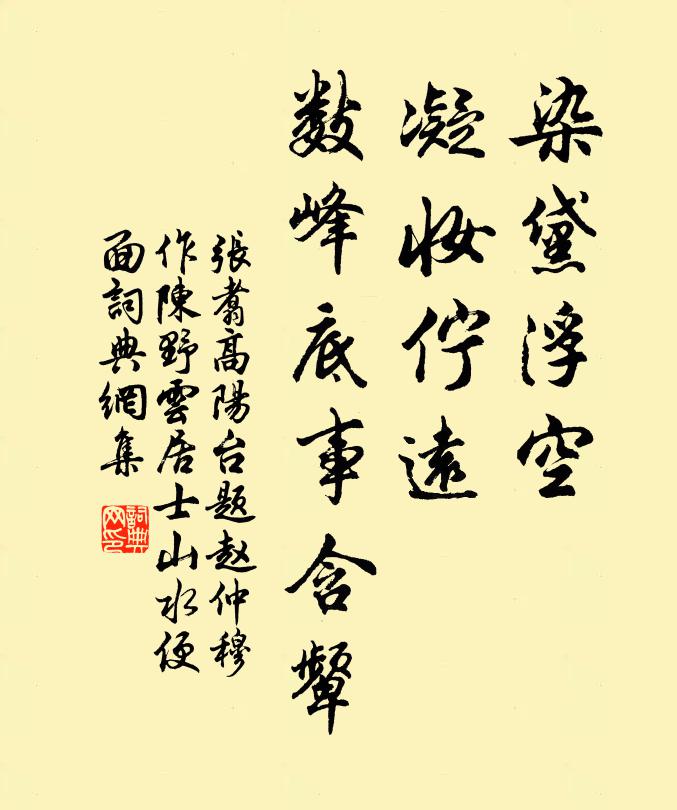 染黛浮空
凝妆伫遠
数峰底事含颦
張翥高陽台题赵仲穆
作陳野雲居士山水便
面詞典網集
詞典网印